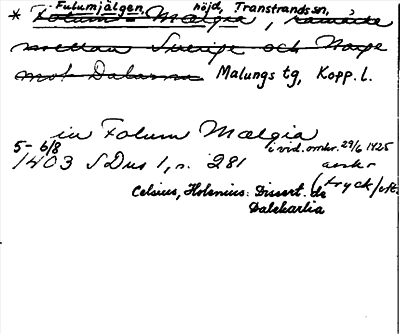 Fulumjälgen, höjd, Transtrands sn,
* Folum Mælgia,
mellan Sverige och Norge
mot Dalarna Malungs tg, Kopp. l.
in Folum Mælgia
5-6/8 i vid. omkr. 29/6 1425
1403 SDns 1, s. 281 avskr
(tryck/eft.
Celsius, Holenius: Dissert. de
Dalekarlia